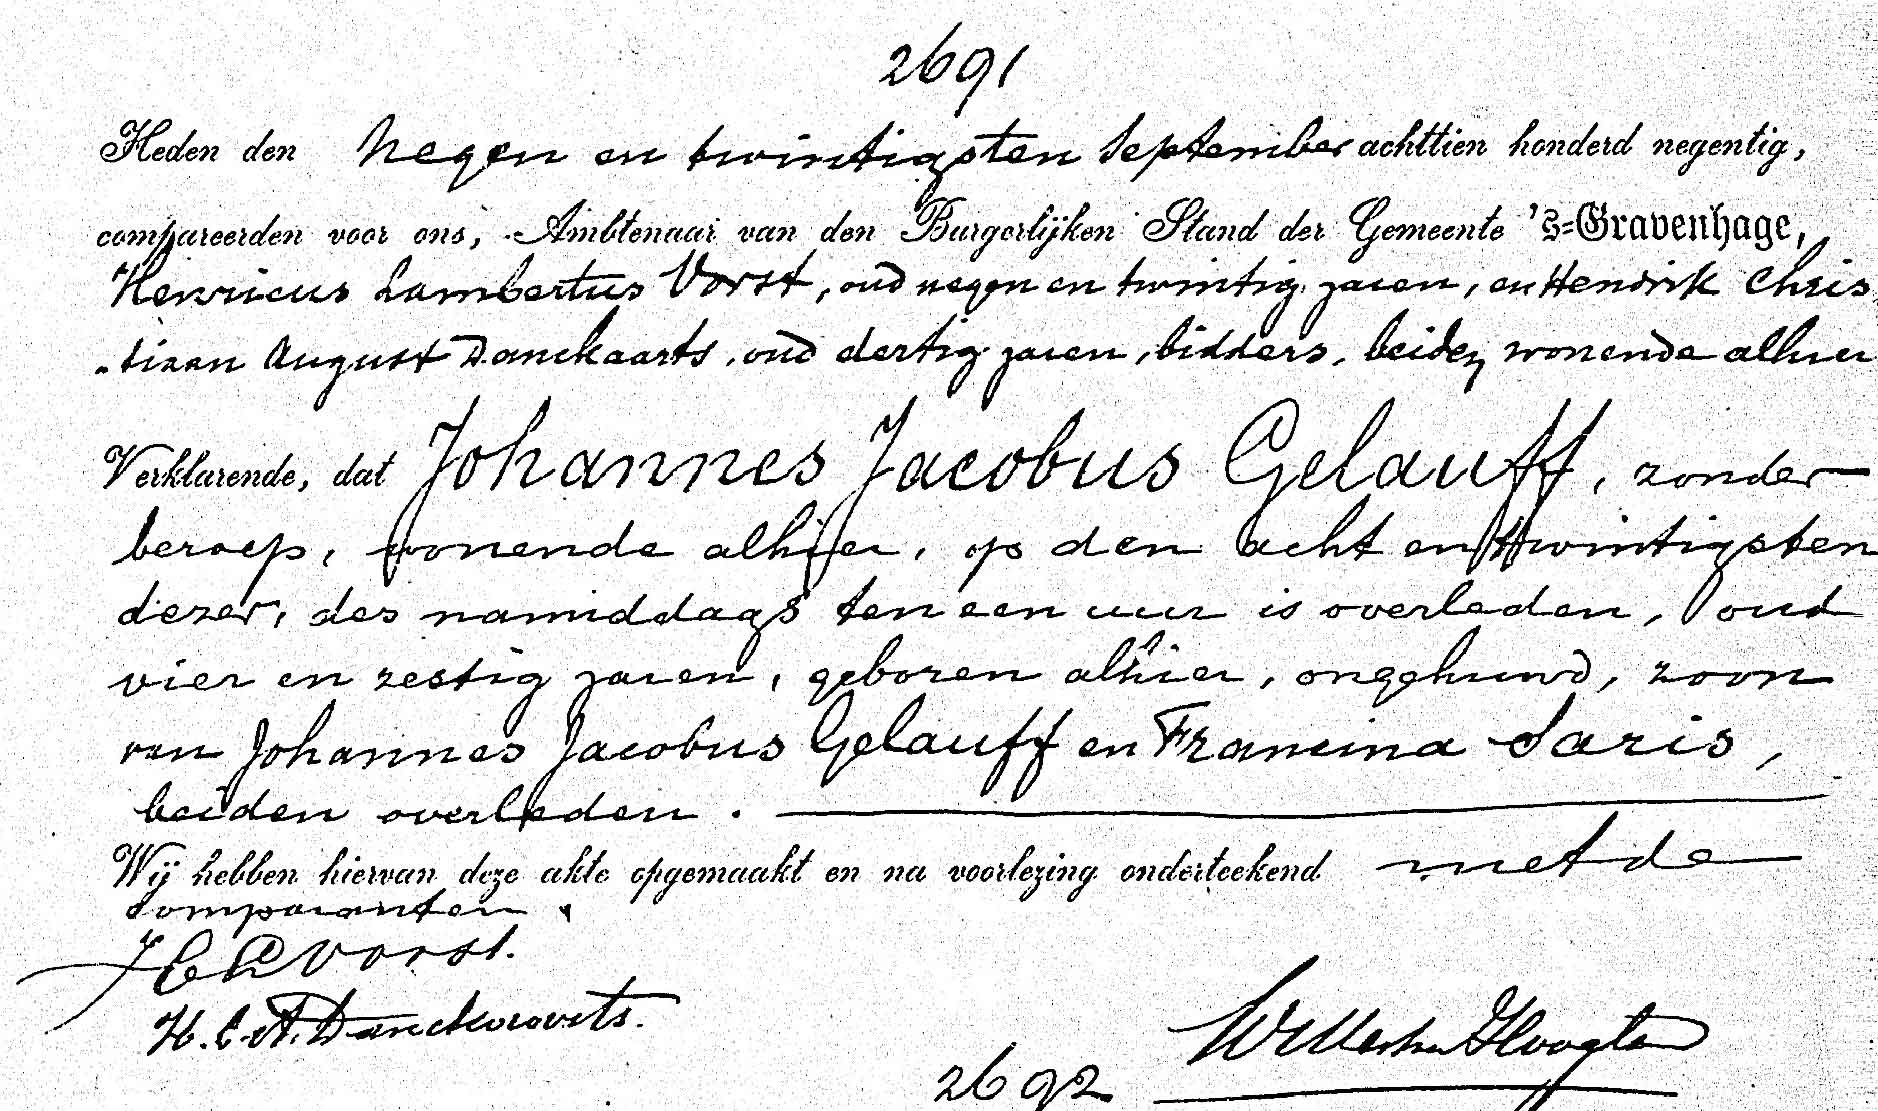 2691
Heden den Negen en twintigsten September achttien honderd negentig,
compareerden voor ons, Ambtenaar van den Burgerlijken Stand der Gemeente 's=Gravenhage,
Henricus Lambertus Vorst, oud negen en twintig jaren, en Hendrik Chris
-tiaan August Danckaarts, oud dertig jaren, bidders, beiden wonende alhier
Verklarende, dat Johannes Jacobus Gelauff, zonder
beroep, wonende alhier, op den acht en twintigsten
dezer, des namiddags ten een uur is overleden, oud
vier en zestig jaren, geboren alhier, ongehuwd, zoon
van Johannes Jacobus Gelauff en Francina Saris,
beiden overleden.
Wij hebben hiervan deze akte opgemaakt en na voorlezing onderteekend met de
comparanten.
H L Vorst.
H. C. A. Danckaarts.
2692